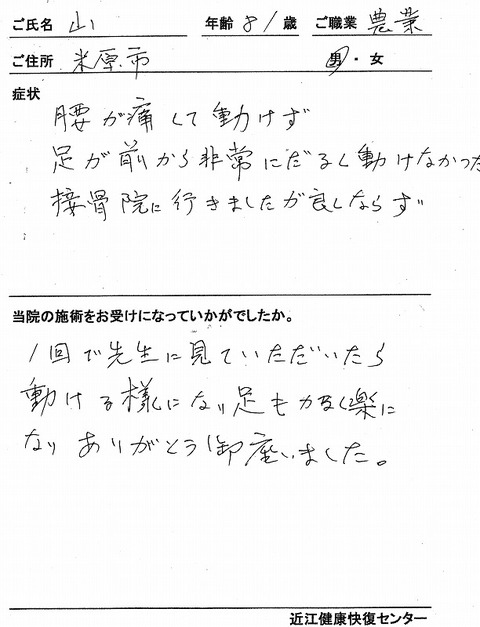 ご氏名 山 年齢 81 歳 ご職業 農業
ご住所 米原市 男・女
症状
腰が痛くて動けず
足が前から非常にだるく動けなかった
接骨院に行きましたが良くならず
当院の施術をお受けになっていかがでしたか。
1回で先生に見ていただいたら
動ける様になり足もかるく楽に
なり ありがとう御座いました。
近江健康快復センター